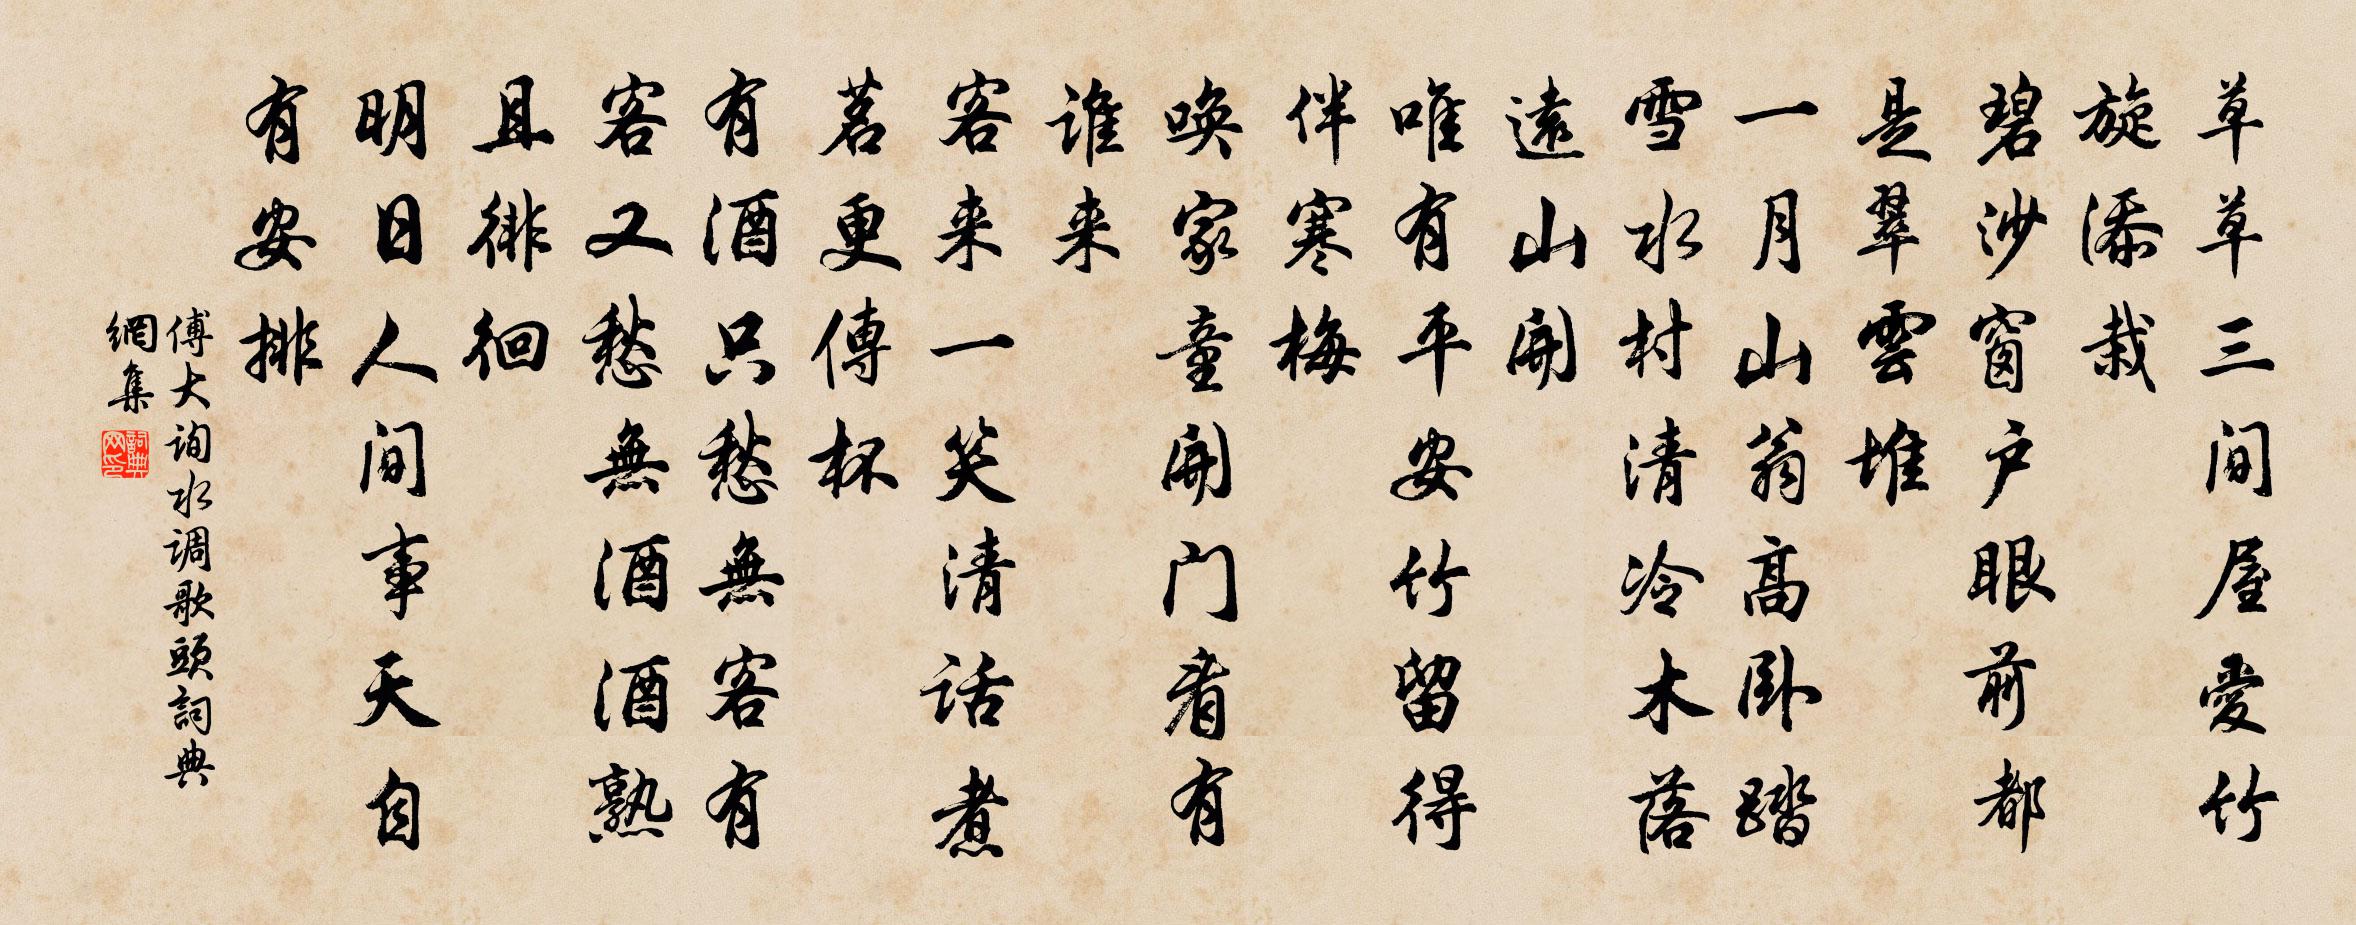 草草三间屋愛竹
旋添栽
碧沙窗户眼前都
是翠雲堆
一月山翁高卧踏
雪水村清冷木落
遠山開
唯有平安竹留得
伴寒梅
唤家童開门看有
谁来
客来一笑清话煮
茗更傳杯
有酒只愁無客有
客又愁無酒酒熟
且徘徊
明日人间事天自
有安排
傅大询水调歌頭詞典
網集
詞典
网印